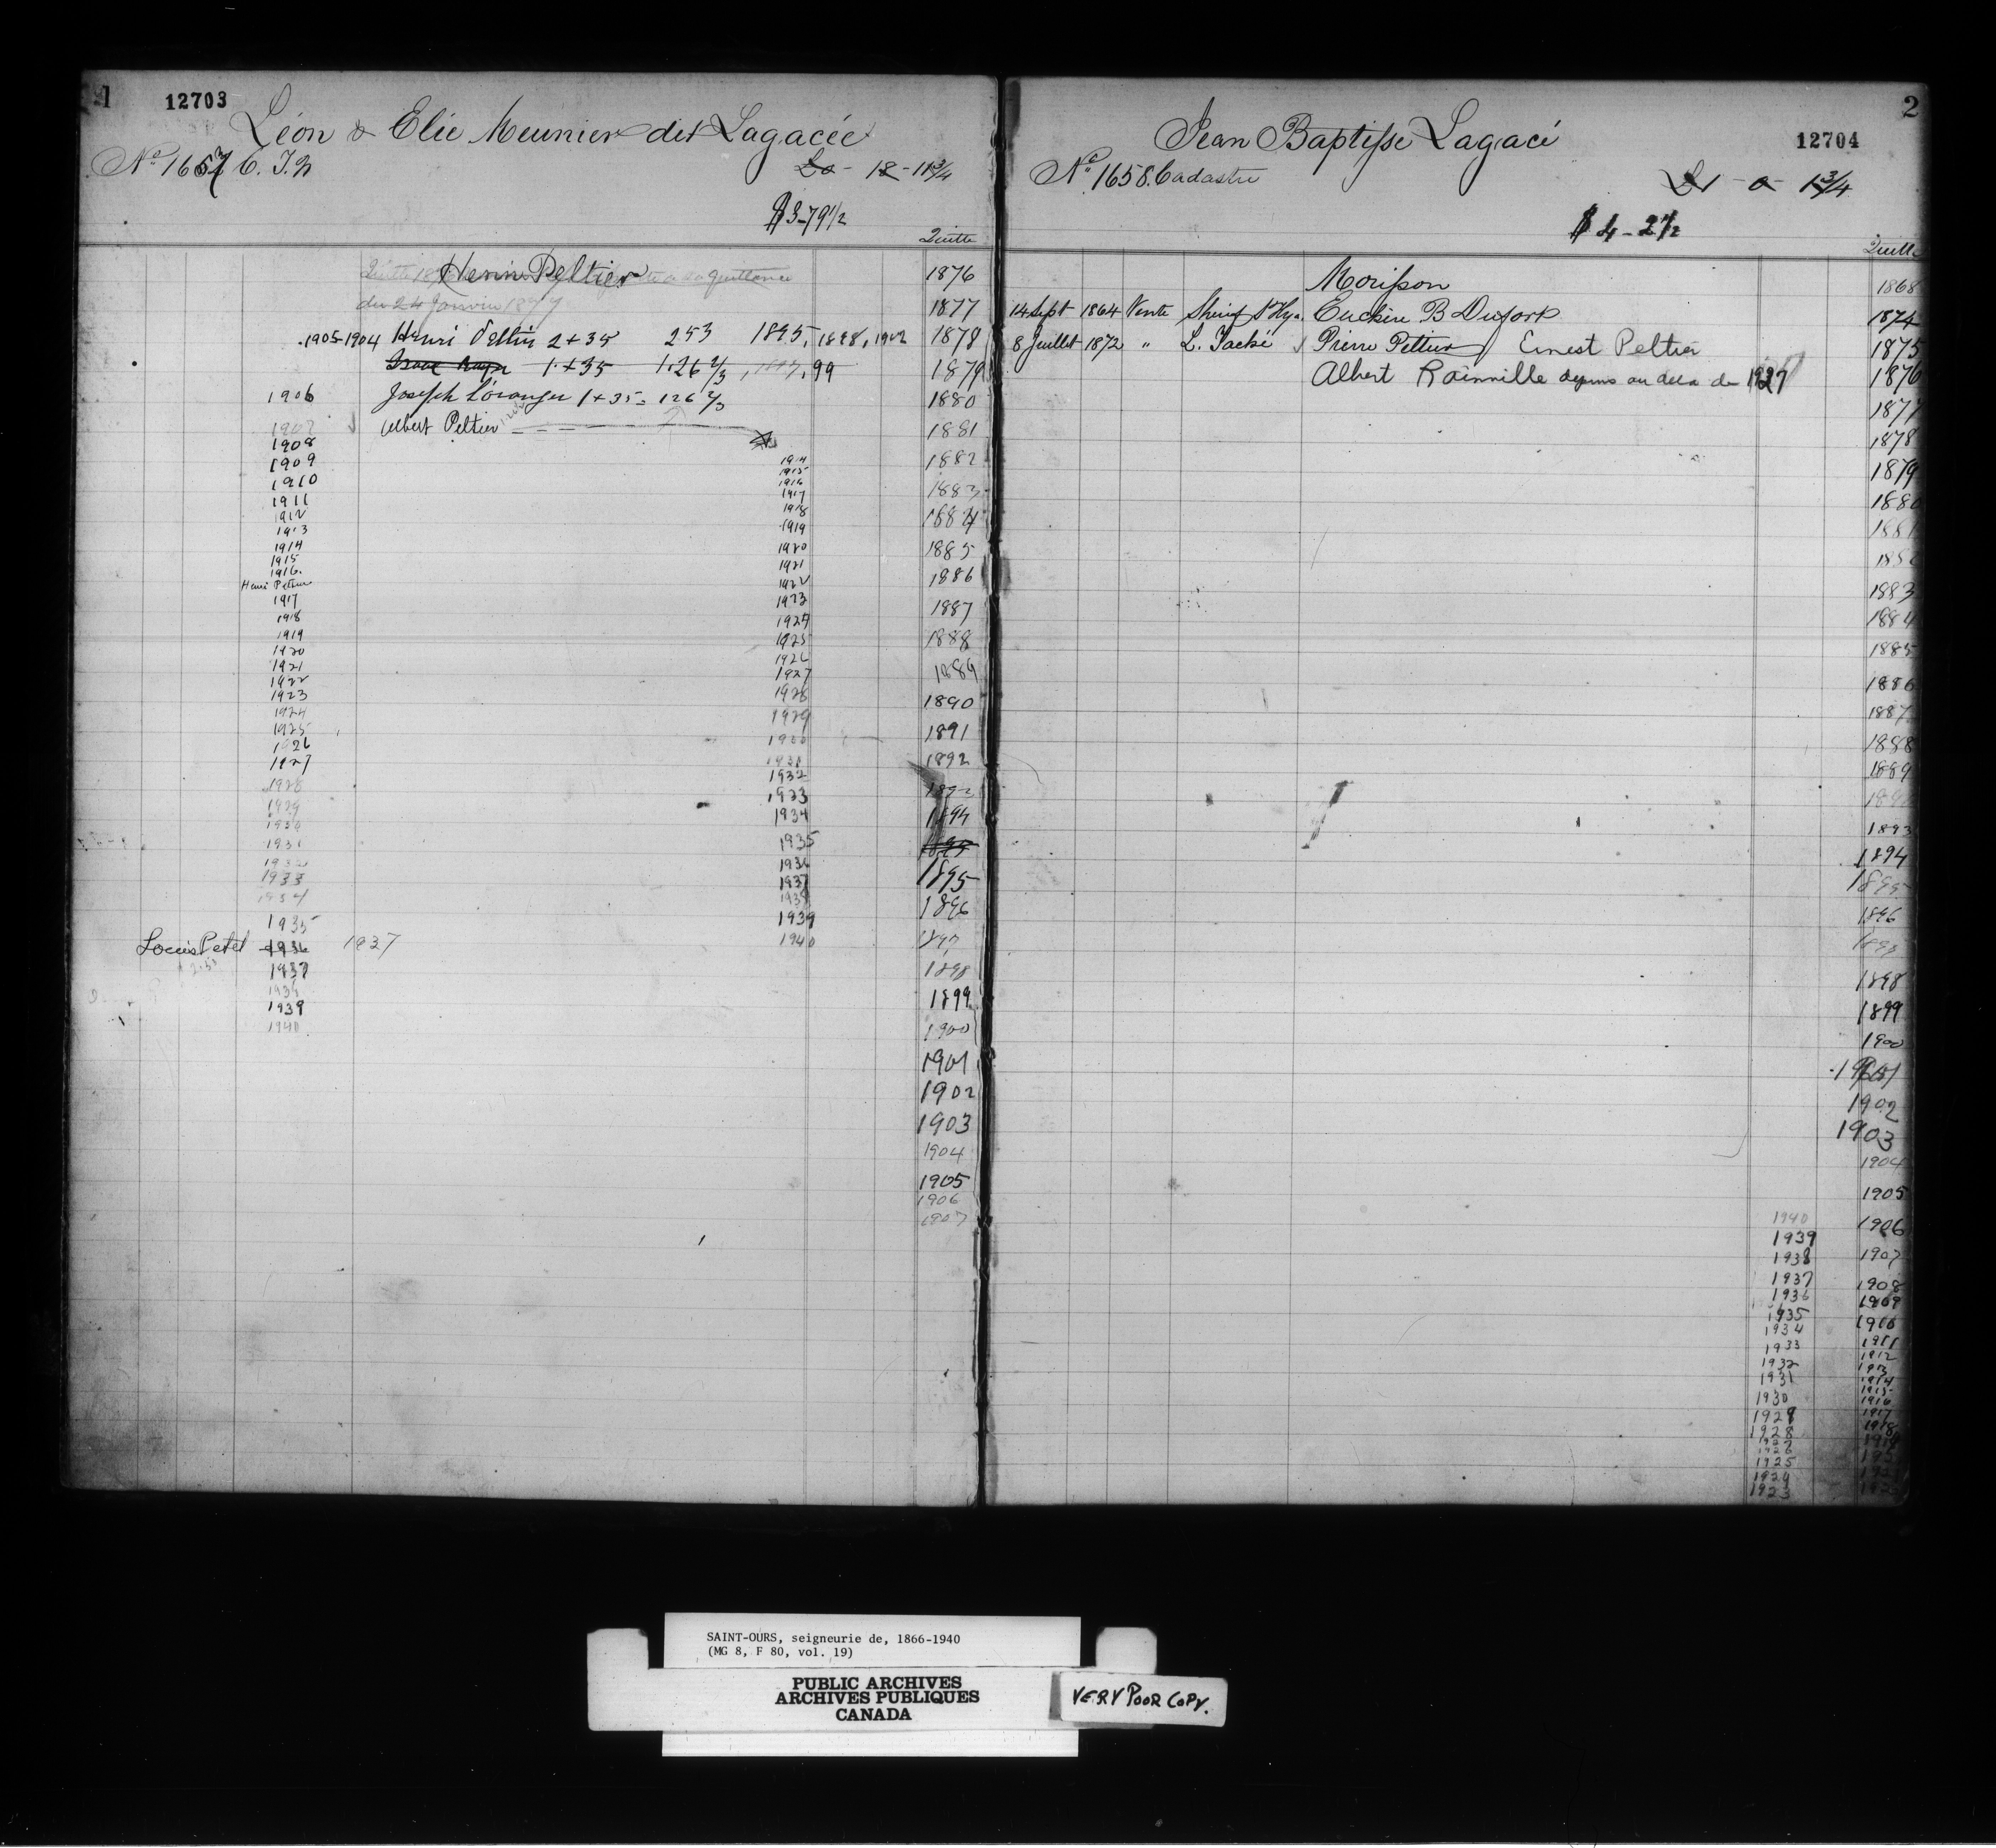 1
12703
Léon & Elie Meunier dit Lagacée
No 1657 C. T. N
£o - 18 - 11 3/4
$3-79 1/2
Quitte
Henri Peltier
du 24 Janvier 1877
1905-1904 Henri Peltier 2 + 35 253 1895, 1898, 1902
1 + 35 1.26 2/3, 99
1906 Joseph Loranger 1 + 35 = 126 2/3
1907 Albert Peltier
1908
1909
1910
1911
1912
1913
1914
1915
1916.
Henri Peltier
1917
1918
1919
1920
1921
1922
1923
1924
1925
1926
1927
1928
1929
1930
1931
1932
1933
1934
1935
Louis Petel 1936 1937
1937
1938
1939
1940
1914
1915
1916
1917
1918
1919
1920
1921
1922
1923
1924
1925
1926
1927
1928
1929
1930
1931
1932
1933
1934
1935
1936
1937
1938
1939
1940
1876
1877
1878
1879
1880
1881
1882
1883
1884
1885
1886
1887
1888
1889
1890
1891
1892
1893
1894
1895
1895
1896
1897
1898
1899
1900
1901
1902
1903
1904
1905
1906
1907
2
12704
Jean Baptiste Lagacé
No 1658. Cadastre
£1 - 0 - 1 3/4
$4-2 1/2
Quitte
Morisson
14 Sept 1864 Vente Sherif St Hya.
8 Juillet 1872 " L. Taché Pierre Peltier Ernest Peltier
Albert Rainville depuis au dela de 1927
1868
1874
1875
1876
1877
1878
1879
1880
1881
1882
1883
1884
1885
1886
1887
1888
1889
1893
1894
1895
1896
1898
1899
1900
1901
1902
1903
1904
1905
1906
1907
1908
1909
1910
1911
1912
1913
1914
1915
1916
1917
1918
1940
1939
1938
1937
1936
1935
1934
1933
1932
1931
1930
1929
1928
1927
1926
1925
1924
1923
SAINT-OURS, seigneurie de, 1866-1940
(MG 8, F 80, vol. 19)
PUBLIC ARCHIVES
ARCHIVES PUBLIQUES
CANADA
VERY POOR COPY.